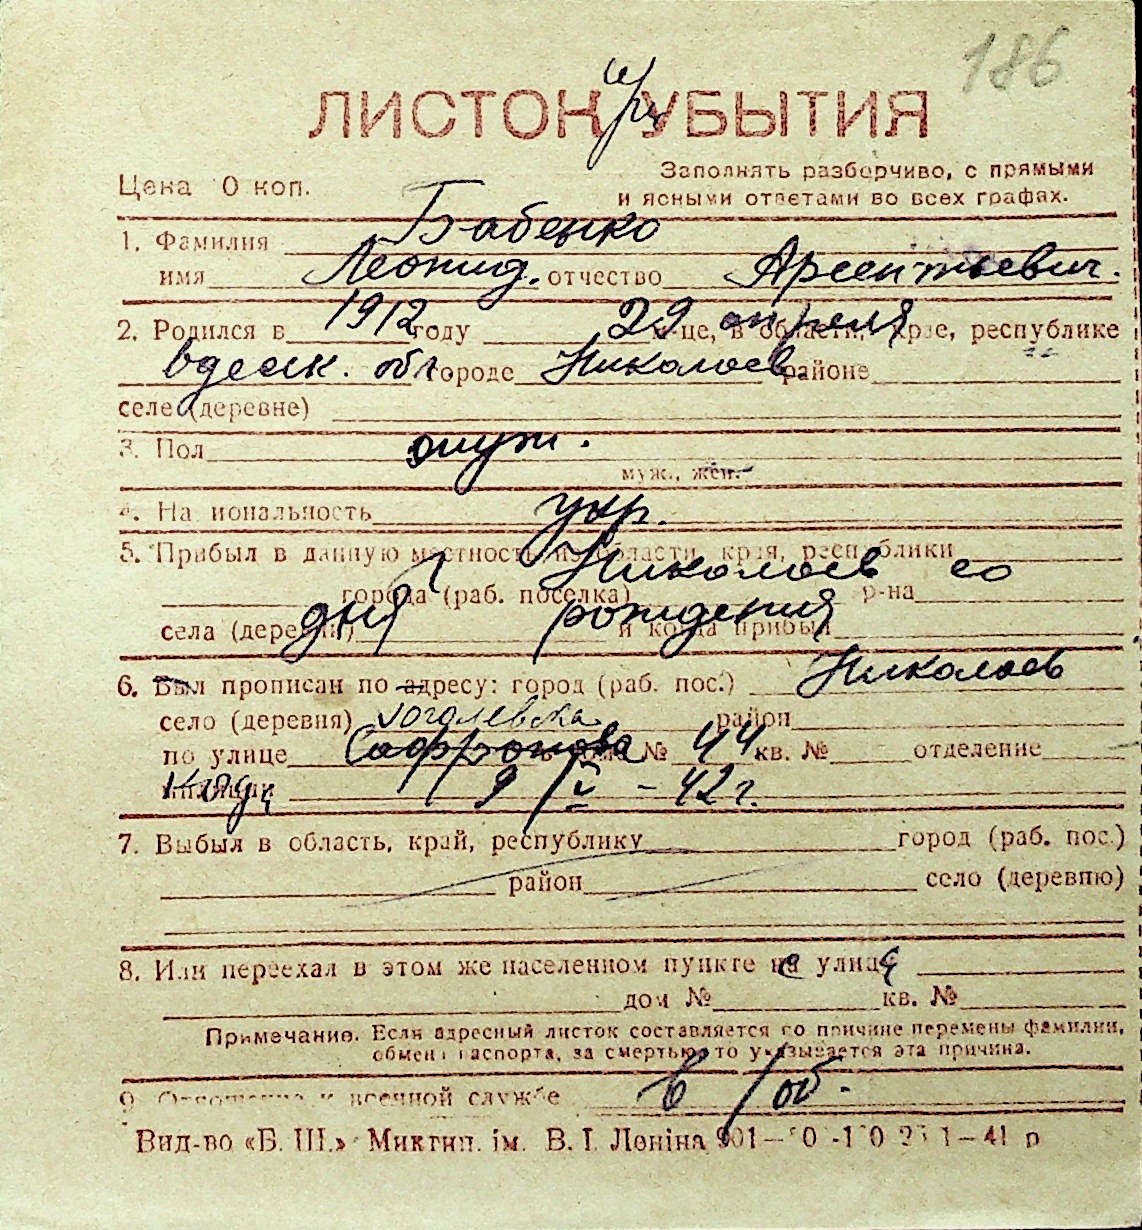 186
ЛИСТОК УБЫТИЯ
Цена 0 коп.
Заполнять разборчиво, с прямыми
и ясными ответами во всех графах.
1. Фамилия Бабенко
имя Леонид. отчество Арсентьевич.
2. Родился в 1912 году 29 апреля м-це, в области, крае, республике
Одесск. обл. городе Николаев. районе
селе (деревне)
3. Пол муж.
муж., жен.
4. Национальность укр.
5. Прибыл в данную местность из области, края, республики
Николаев со
города (раб. поселка) р-на
дня рождения
села (деревни) и когда прибыл
6. Был прописан по адресу: город (раб. пос.) Николаев
село (деревня) Гоголевска район
по улице Сафронова дом № 44 кв. № отделение
милиции 9/V - 42 г.
7. Выбыл в область, край, республику город (раб. пос.)
район село (деревню)
8. Или переехал в этом же населенном пункте на улицу
дом № кв. №
Примечание. Если адресный листок составляется по причине перемены фамилии,
обмена паспорта, за смертью, то указывается эта причина.
9. Отношение к военной службе в/об.
Вид-во «Б. Ш.» Миктип. ім. В. І. Леніна 1–41 р